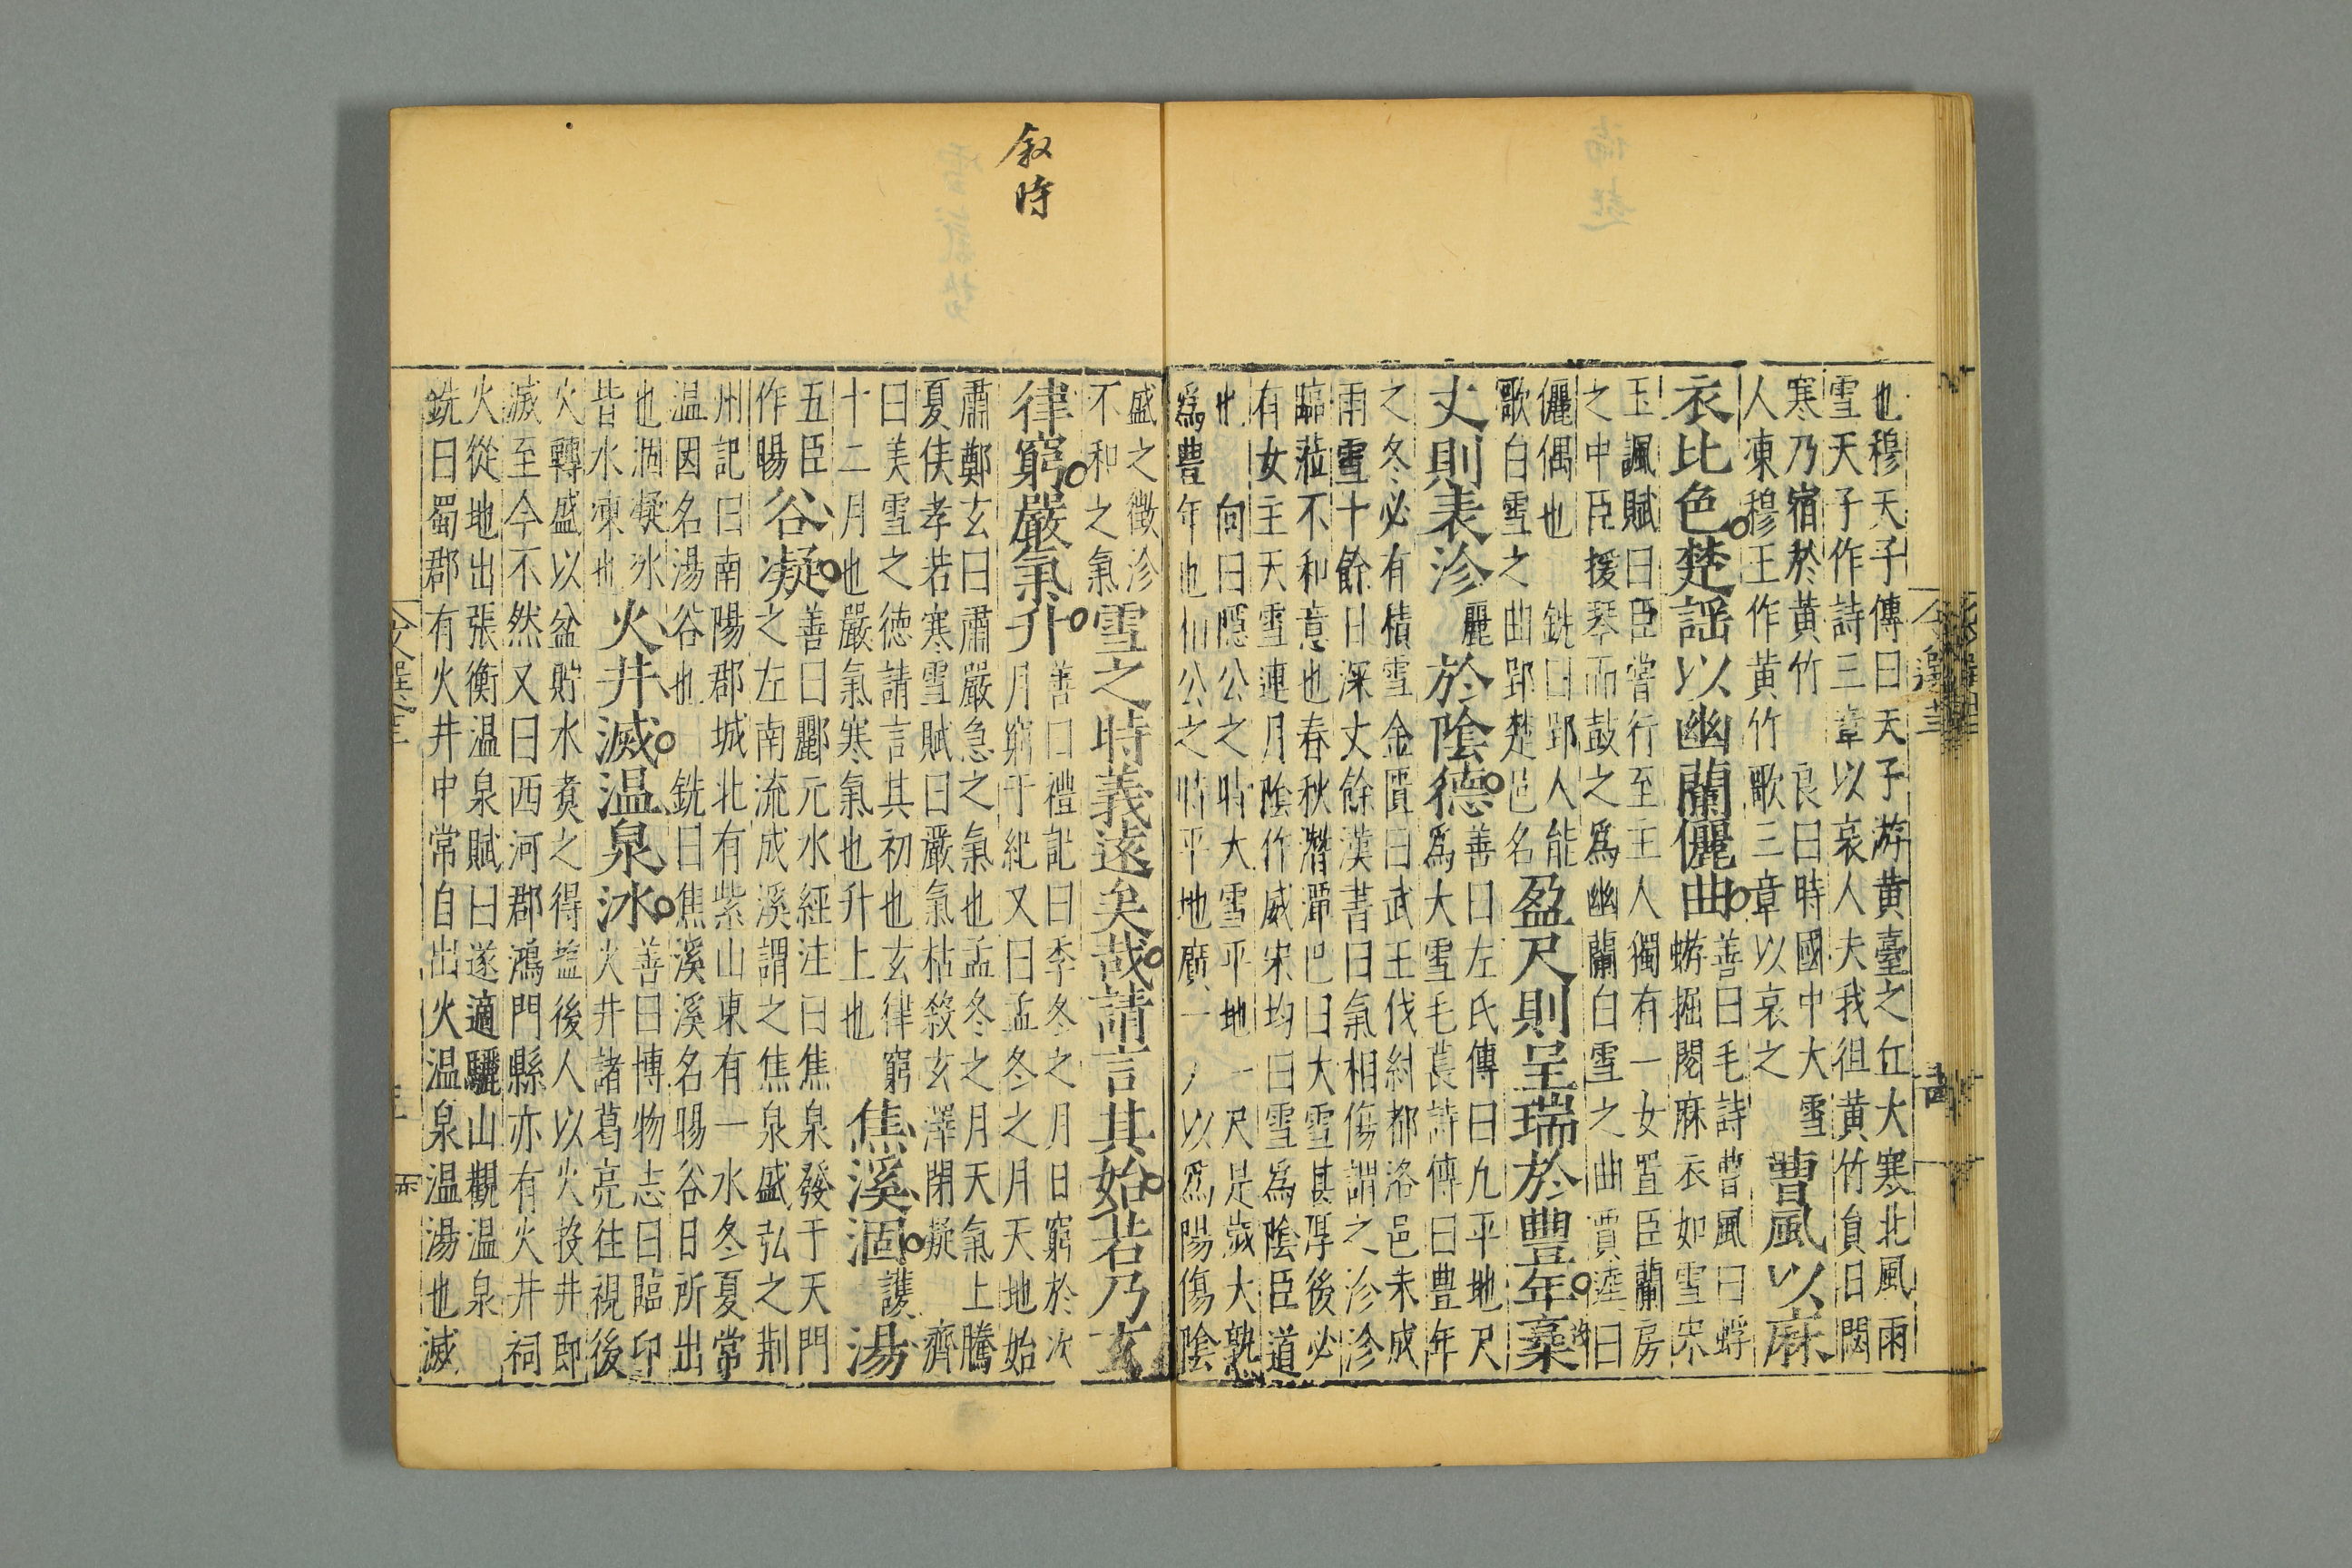 也穆天子傳曰天子游黄臺之丘大寒北風雨
雪天子作詩三章以哀人夫我徂黄竹負日閟
寒乃宿於黄竹 良曰時國中大雪
人凍穆王作黄竹歌三章以哀之
曹風以麻
衣比色楚謡以幽蘭儷曲
善曰毛詩曹風曰蜉
蝣掘閱麻衣如雪宋
玉諷賦曰臣嘗行至主人獨有一女置臣蘭房
之中臣援琴而鼓之爲幽蘭白雪之曲賈逵曰
儷偶也 銑曰郢人能
歌白雪之曲郢楚邑名
盈尺則呈瑞於豐年袤
丈則表沴
於陰德
善曰左氏傳曰凡平地尺
爲大雪毛萇詩傳曰豊年
之冬必有積雪金匱曰武王伐紂都洛邑未成
雨雪十餘日深丈餘漢書曰氣相傷謂之沴沴
臨蒞不和意也春秋潛潭巴曰大雪甚厚後必
有女主天雪連月陰作威宋均曰雪爲陰臣道
也 向曰隱公之時大雪平地一尺是歲大熟
爲豊年也 公之時平地廣一 以爲陽傷陰
盛之徵沴
不和之氣
雪之時義遠矣哉請言其始若乃玄
律窮嚴氣升
善曰禮記曰季冬之月日窮於次
月窮于紀又曰孟冬之月天地始
肅鄭玄曰肅嚴急之氣也孟冬之月天氣上騰
夏侯孝若寒雪賦曰嚴氣枯殺玄澤閉凝 濟
曰美雪之德請言其初也玄律窮
十二月也嚴氣寒氣也升上也
焦溪涸湯
五臣
作暘
谷凝
善曰酈元水經注曰焦泉發于天門
之左南流成溪謂之焦泉盛弘之荆
州記曰南陽郡城北有紫山東有一水冬夏常
温因名湯谷也 銑曰焦溪溪名暘谷日所出
也涸凝氷
昔水凍也
火井滅温泉冰
善曰博物志曰臨卭
火井諸葛亮往視後
火轉盛以盆貯水煮之得盐後人以火投井即
滅至今不然又曰西河郡鴻門縣亦有火井祠
火從地出張衡温泉賦曰遂適驪山觀温泉
銑曰蜀郡有火井中常自出火温泉温湯也滅
叙時